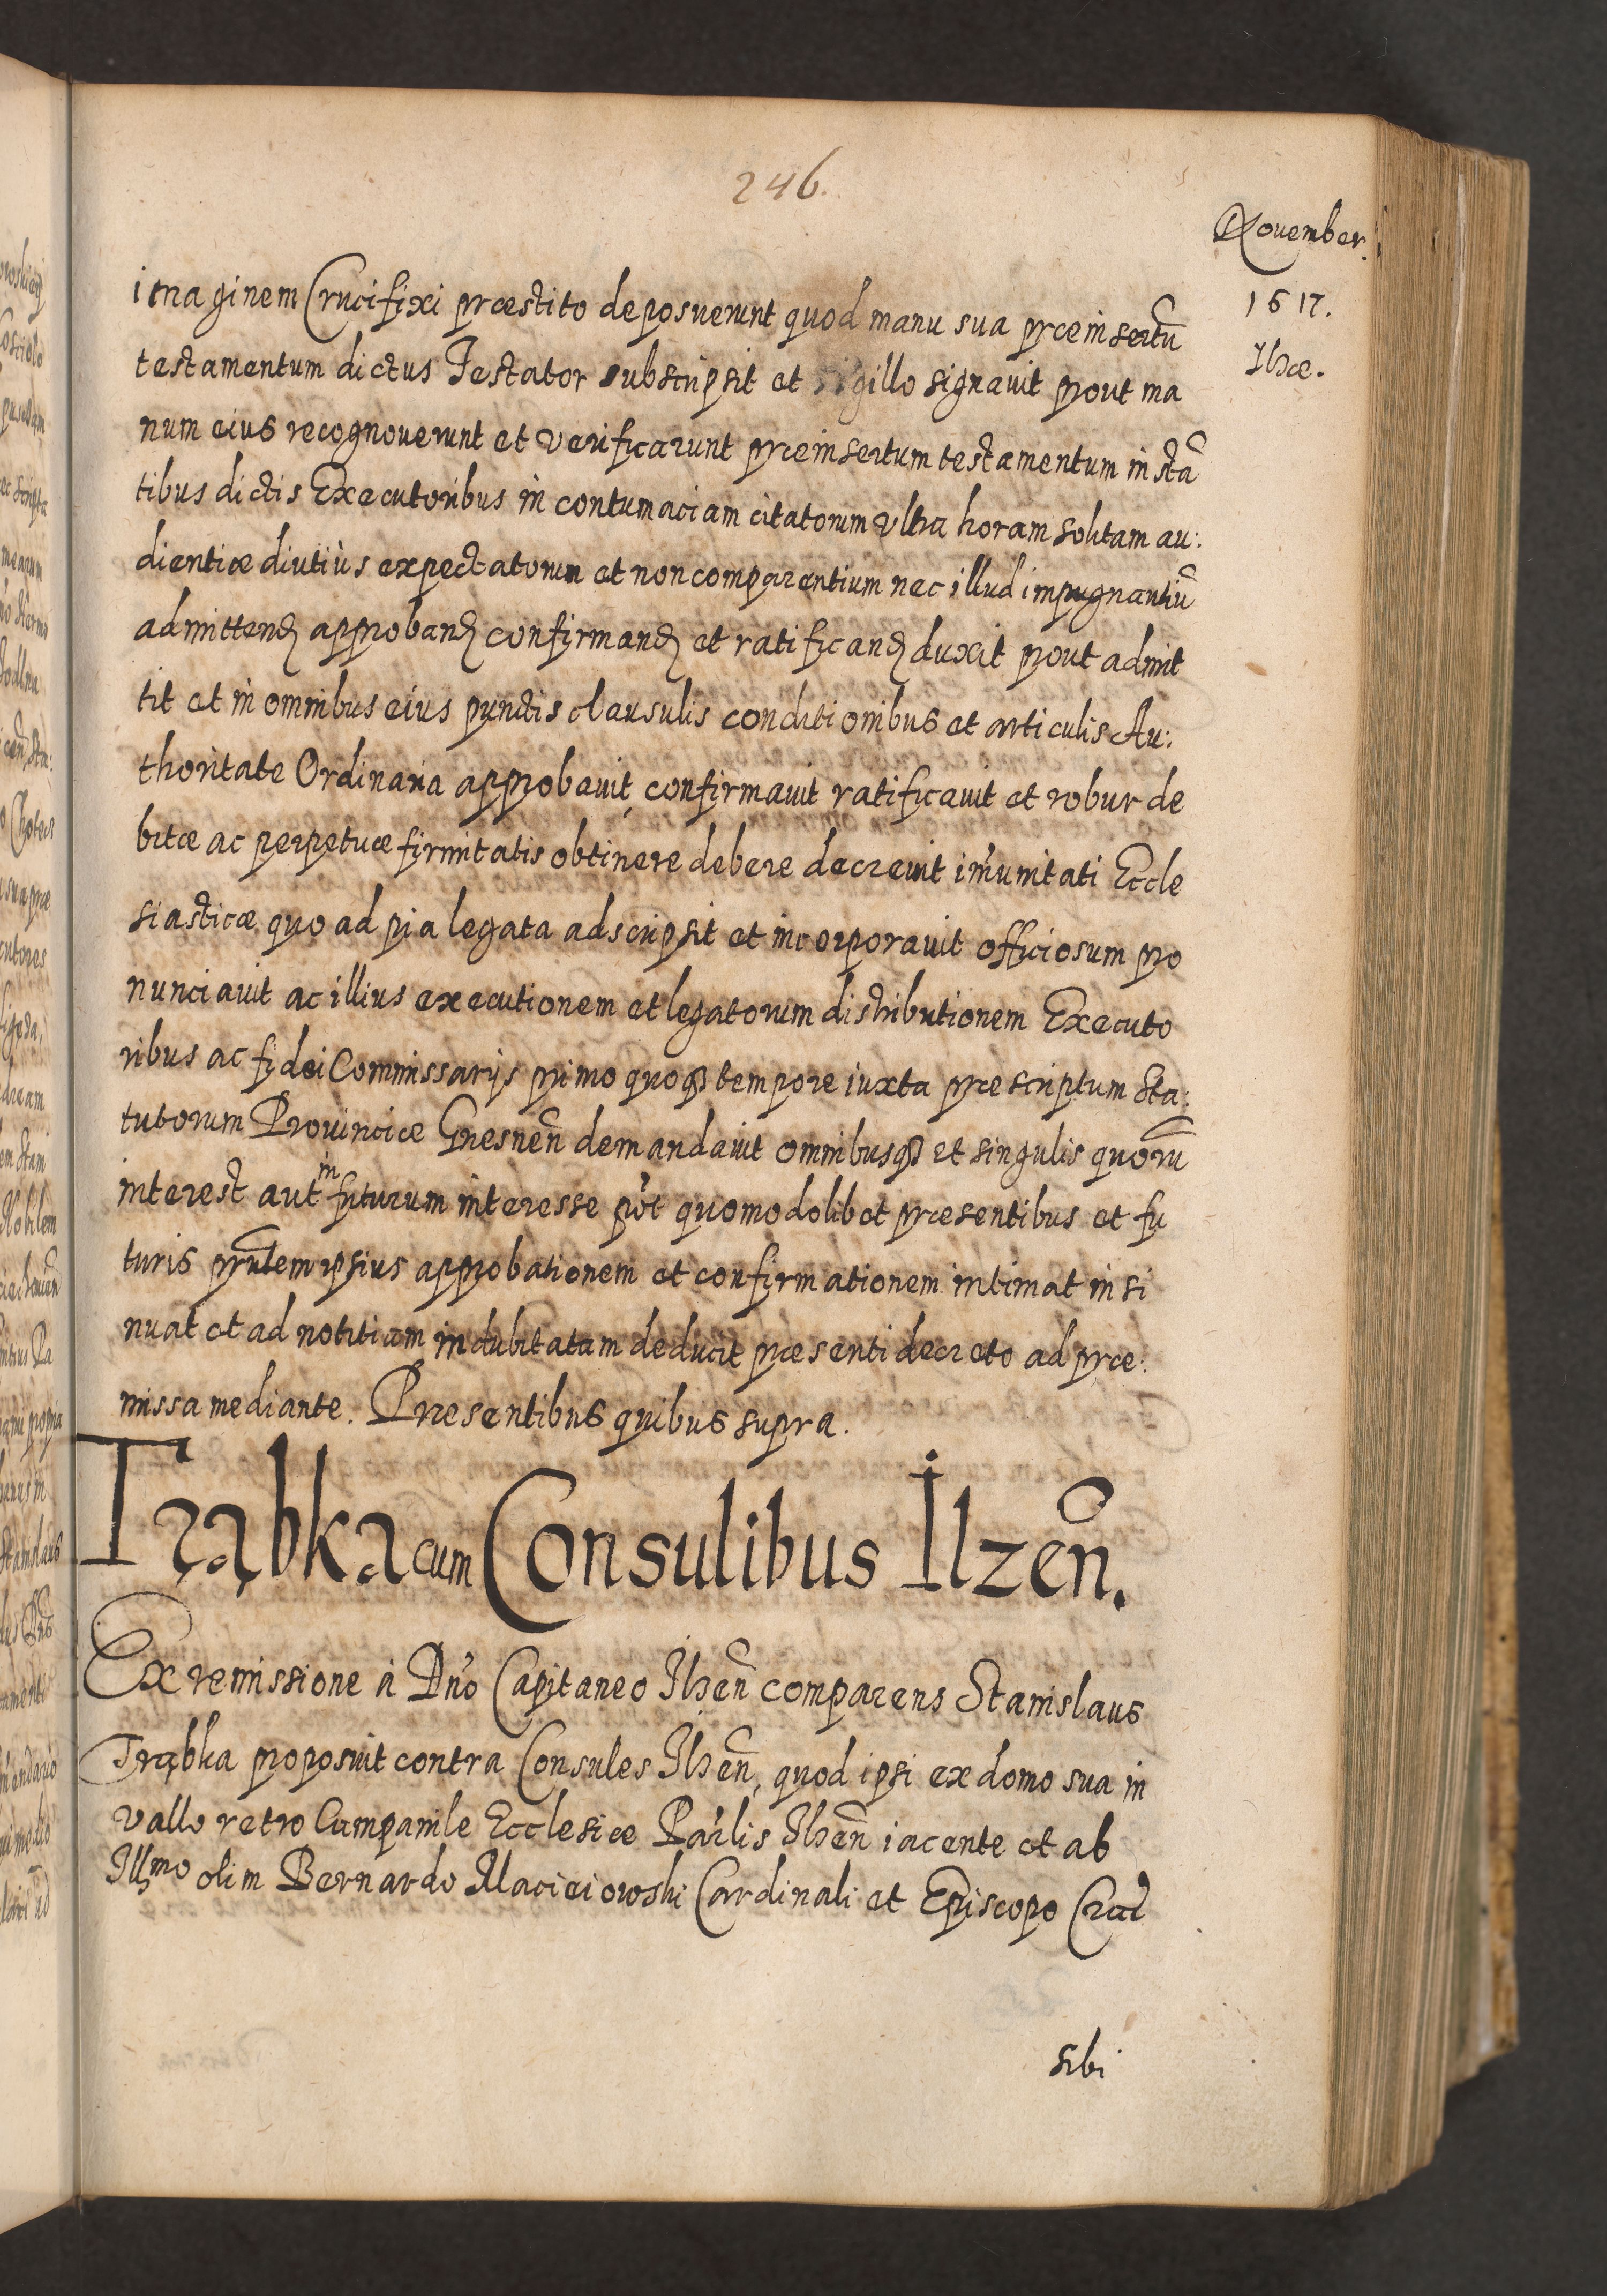 246.
November.
1617.
Ilzæ.
imaginem Crucifixi præstito deposuerunt quod manu sua præinsertũ
testamentum dictus Testator subscripsit et sigillo signavit prout ma
num eius recognoverunt et verificarunt præinsertum testamentum instã
tibus dictis Executoribus in contumaciam citatorum ultra horam solitam au:
dientiæ diutiùs expectatorum et non comparentium nec illud impugnantiũ
admittend approband confirmand et ratificand duxit prout admit
tit et in omnibus eius punctis clausulis conditionibus et articulis Au:
thoritate Ordinaria approbavit, confirmavit ratificavit et robur de
bitæ ac perpetuæ firmitatis obtinere debere decrevit im̃unitati Eccle
siasticæ quo ad pia legata adscripsit et incorporavit officiosum pro
nunciavit ac illius executionem et legatorum distributionem Executo
ribus ac fidei Commissarijs primo quoq₃ tempore iuxta præscriptum Sta:
tutorum Provinciæ Gnesneñ demandavit omnibusq₃ et singulis quorũ
interest aut in futurum interesse põt quomodolibet præsentibus et fu
turis pñtem ipsius approbationem et confirmationem intimat insi
nuat et ad notitiam indubitatam deducit præsenti decreto ad præ:
missa mediante. Præsentibus quibus supra.
Trąbka cum Consulibus Ilzeñ.
Ex remissione à Dño Capitaneo Ilzeñ comparens Stanislaus
Trąbka proposuit contra Consules Ilzeñ, quod ipsi ex domo sua in
vallo retro Campanile Ecclesiæ Pãrlis Ilzeñ iacente et ab
Illmo olim Bernardo Maciciowski Cardinali et Episcopo Crac̃
sibi